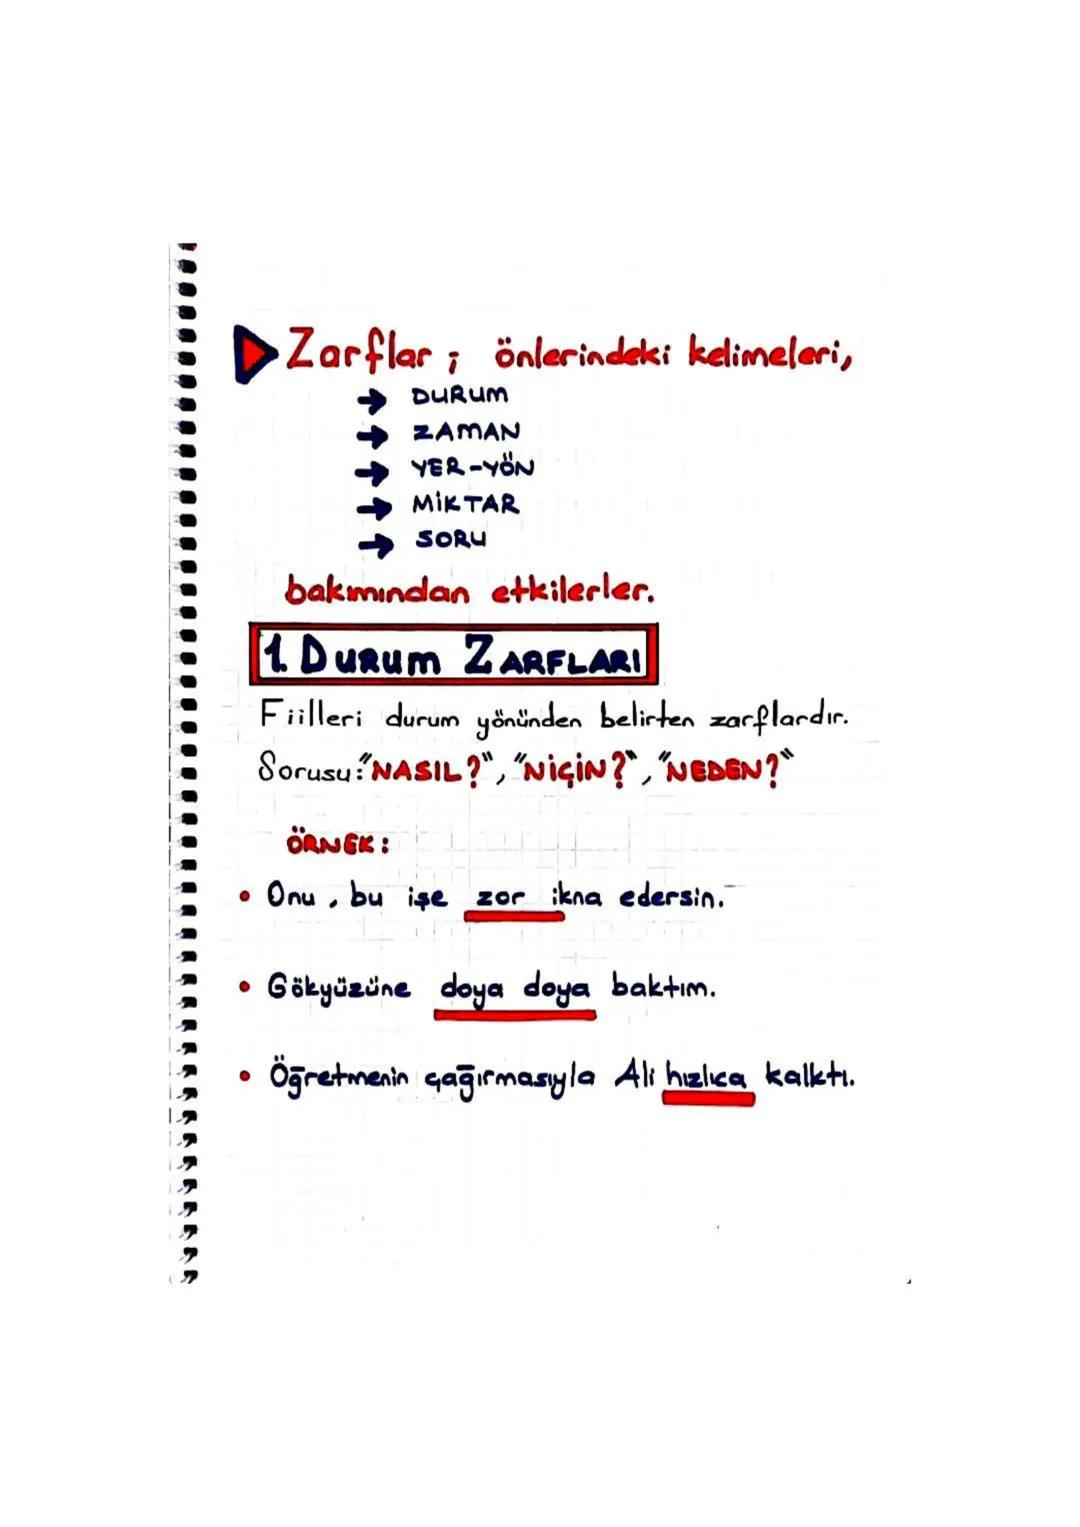 Zarflar; önlerindeki kelimeleri,
→ DURUM
→ ZAMAN
→ YER-YÖN
→ MİKTAR
→ SORU
bakımından etkilerler.
1. DURUM ZARFLARI
Fiilleri durum yönünden belirten zarflardır.
Sorusu: "NASIL?", "NİÇİN?", "NEDEN?"
ÖRNEK:
• Onu, bu işe zor ikna edersin.
• Gökyüzüne doya doya baktım.
• Öğretmenin çağırmasıyla Ali hızlıca kalktı.